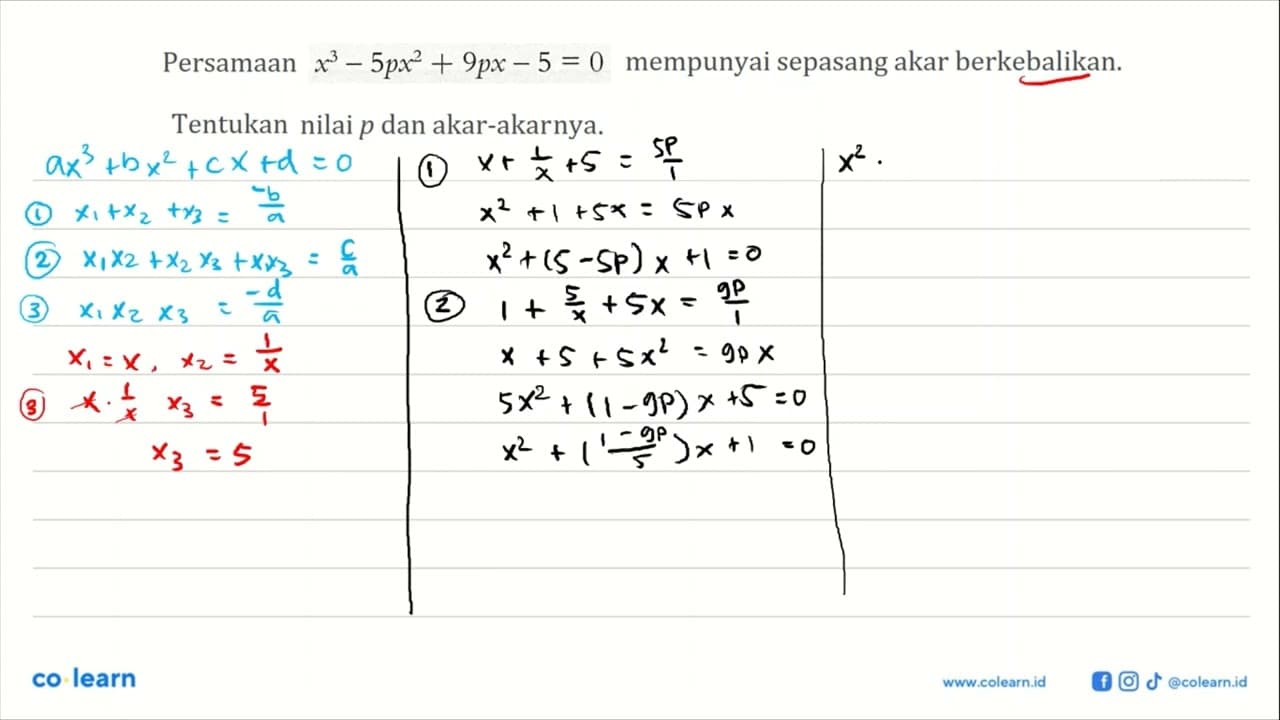 Persamaan x³ − 5px² + 9px − 5 = 0 mempunyai sepasang akar berkebalikan.
Tentukan nilai p dan akar-akarnya.
ax³ + bx² + cx + d = 0
① x₁ + x₂ + x₃ = -b/a
② x₁x₂ + x₂x₃ + x₁x₃ = c/a
③ x₁ x₂ x₃ = -d/a
x₁ = x, x₂ = 1/x
③ x · 1/x x₃ = 5/1
x₃ = 5
① x + 1/x + 5 = 5p/1
x² + 1 + 5x = 5px
x² + (5 - 5p)x + 1 = 0
② 1 + 5/x + 5x = 9p/1
x + 5 + 5x² = 9px
5x² + (1 - 9p)x + 5 = 0
x² + (1 - 9p/5)x + 1 = 0
x² .
co learn
www.colearn.id
@colearn.id